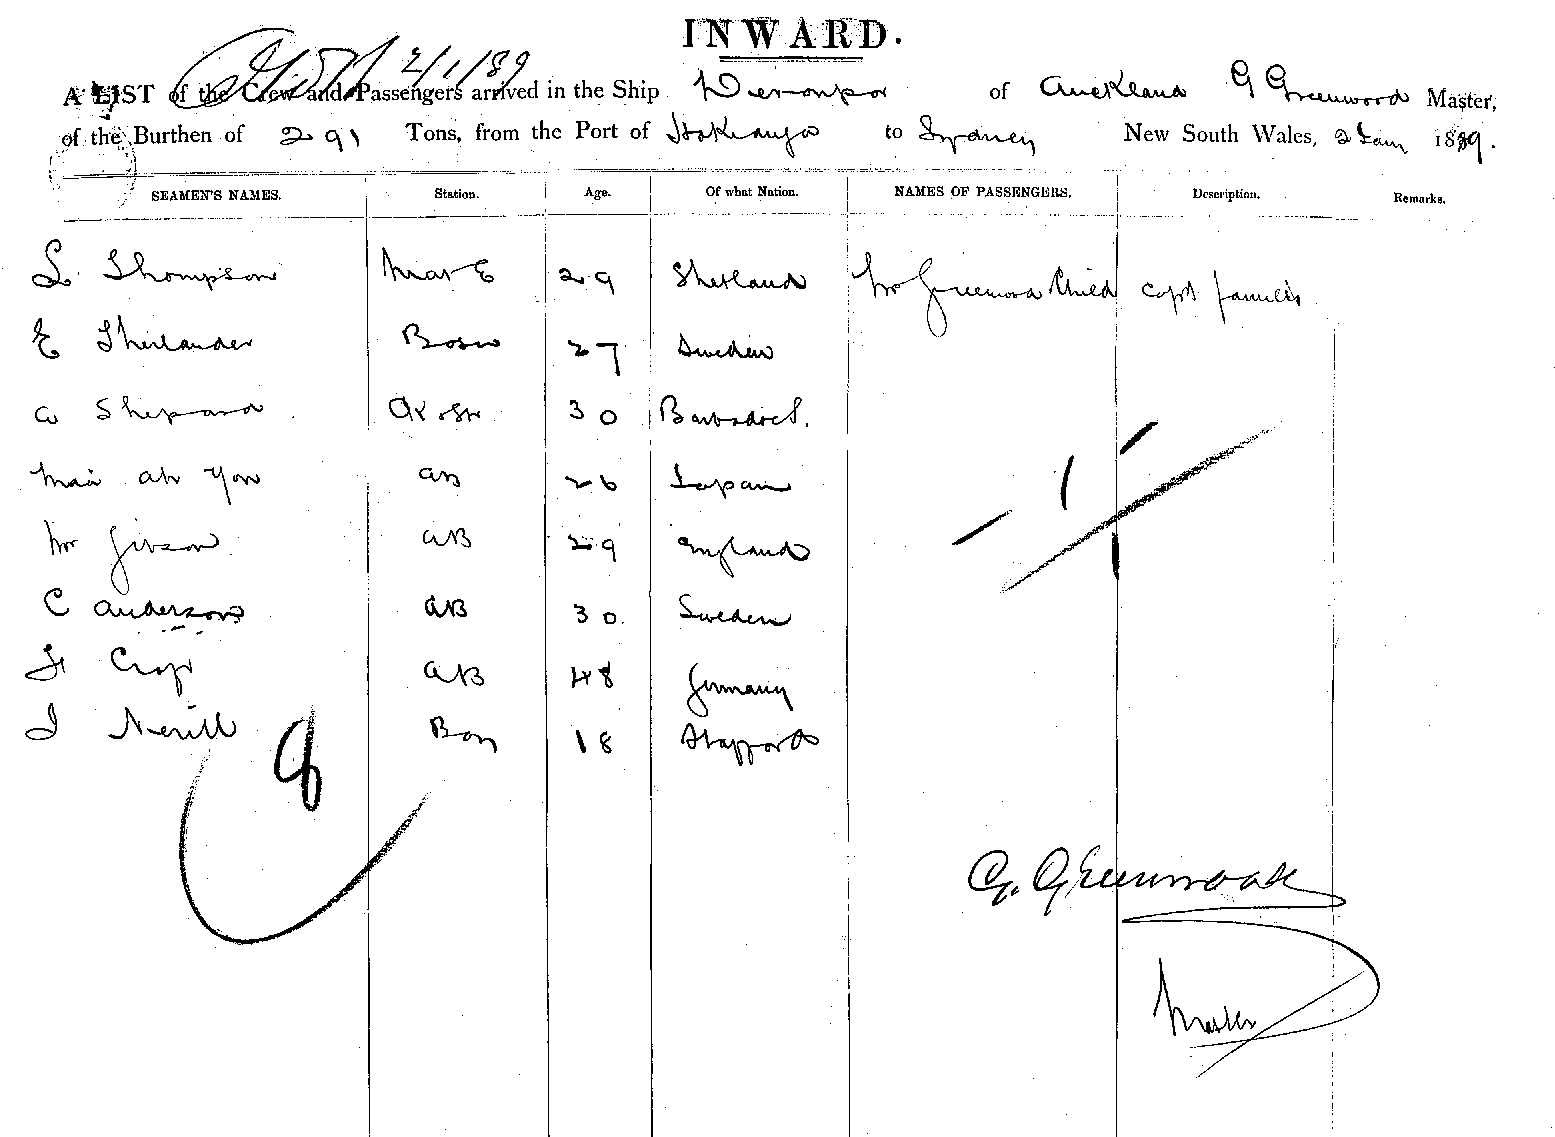 INWARD.
2/1/89
A LIST of the Crew and Passengers arrived in the Ship Devonpor of Auckland G Greenwood Master,
of the Burthen of 291 Tons, from the Port of Hokianga to Sydney New South Wales, 2 Jany 1889.
SEAMEN'S NAMES. Station. Age. Of what Nation. NAMES OF PASSENGERS. Description. Remarks.
L Thompson Mate 29 Shetland Mr Greenwood Child Capt family
E Therlander Bosn 27 Sweden
a Shepard Ck & St 30 Barbadoes.
ah You aB 26 Japan
Wm Gibson aB 29 England
C anderson aB 30 Sweden
Crop aB 48 Germany
J Nevill Boy 18 Stafford
G. Greenwood
Master